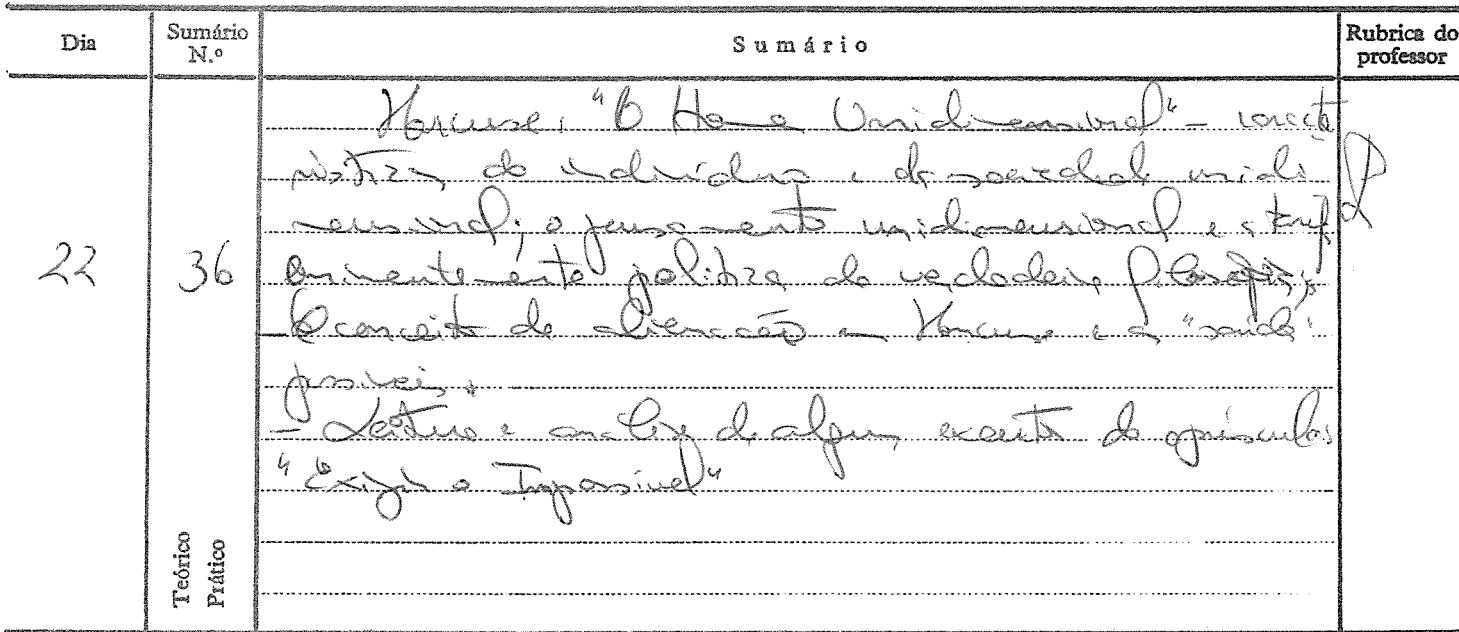 Dia
Sumário N.º
Sumário
Rubrica do professor
22
36
Marcuse, "O Homem Unidimensional" - caracte
rísticas do indivíduo e da sociedade unidi
mensional; o pensamento unidimensional e a tarefa
eminentemente política da verdadeira filosofia;
O conceito de alienação em Marcuse e as "saídas"
possíveis.
- Leitura e análise de alguns excertos do opúsculo
"Exigir o Impossível"
Teórico
Prático